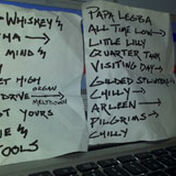 WHISKEY
MIND
GET HIGH
DRIVE → ORGAN
MELTDOWN
NOT YOURS
TOOLS
PAPA LEGBA
ALL TIME LOW →
LITTLE LILLY
QUARTER TANK
VISITING DAY →
GILDED SPLINTERS
CHILLY →
ARLEEN →
PILGRIMS →
CHILLY